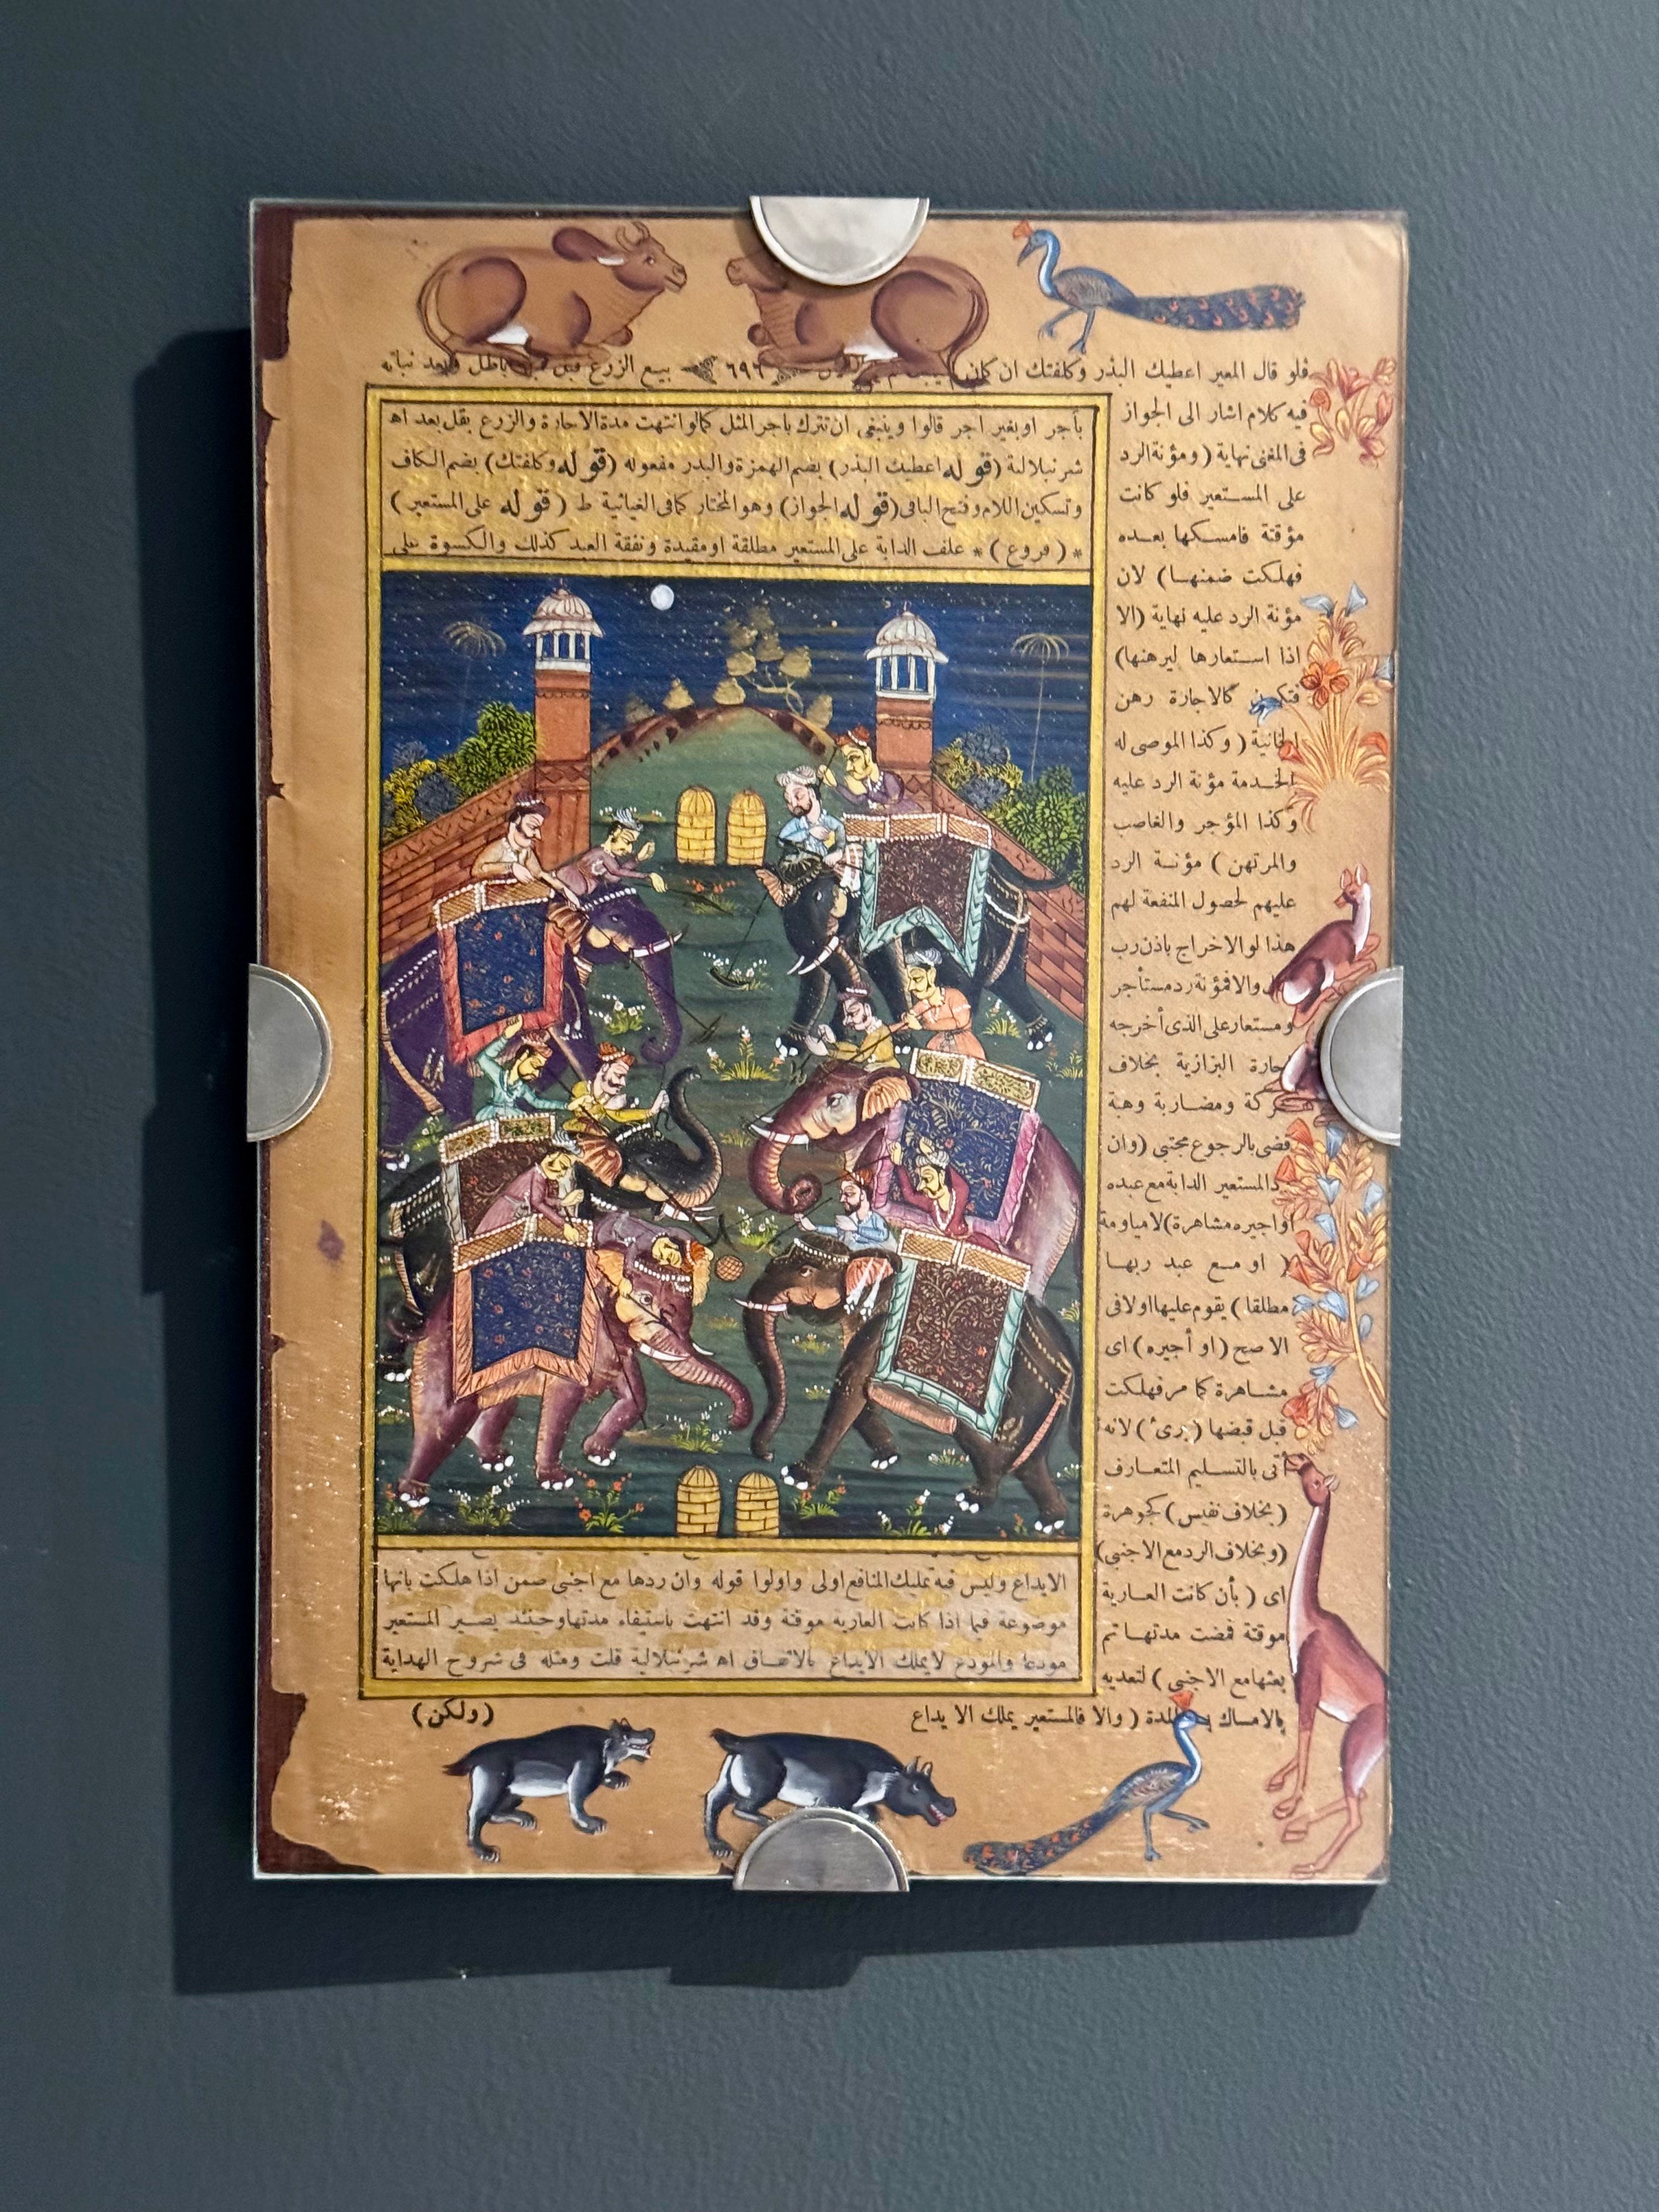 فلو قال المعير اعطيك البذر وكلفتك ان كان
٦٩٦
بيع الزرع قبل باطل وبعد نباته
فيه كلام اشار الى الجواز
فى المغنى نهاية (ومؤنة الرد
على المستعير فلو كانت
مؤقتة فامسكها بعده
فهلكت ضمنها) لان
مؤنة الرد عليه نهاية (الا
اذا استعارها ليرهنها)
فتكون كالاجارة رهن
الخانية (وكذا الموصى له
الخدمة مؤنة الرد عليه
وكذا المؤجر والغاصب
والمرتهن) مؤنة الرد
عليهم لحصول المنفعة لهم
هذا لو الاخراج باذن رب
والا فمؤنة رد مستأجر
ومستعار على الذى أخرجه
البزازية بخلاف
ومضاربة وهبة
قضى بالرجوع مجتبى (وان
المستعير الدابة مع عبده
او اجيره مشاهرة) لا مياومة
(او مع عبد ربها
مطلقا) يقوم عليها اولا فى
الاصح (او أجيره) اى
مشاهرة كما مر فهلكت
قبل قبضها (برئ) لانه
أتى بالتسليم المتعارف
(بخلاف نفيس) كجوهرة
(وبخلاف الرد مع الاجنبى)
اى (بأن كانت العارية
موقتة فمضت مدتها ثم
بعثها مع الاجنبى) لتعديه
بالامساك المدة (والا فالمستعير يملك الايداع
بأجر او بغير اجر قالوا وينبغى ان تترك باجر المثل كما لو انتهت مدة الاجارة والزرع بقل بعد اه
شرنبلالية (قوله اعطيك البذر) بضم الهمزة والبذر مفعوله (قوله وكلفتك) بضم الكاف
وتسكين اللام وفتح الباقى (قوله الجواز) وهو المختار كما فى الغياثية ط (قوله على المستعير)
* (فروع) * علف الدابة على المستعير مطلقة او مقيدة ونفقة العبد كذلك والكسوة على
الايداع وليس فيه تمليك المنافع اولى واولوا قوله وان ردها مع اجنبى ضمن اذا هلكت بانها
موضوعة فيما اذا كانت العارية موقتة وقد انتهت باستيفاء مدتها وحينئذ يصير المستعير
مودعا والمودع لا يملك الايداع بالاتفاق اه شرنبلالية قلت ومثله فى شروح الهداية
(ولكن)